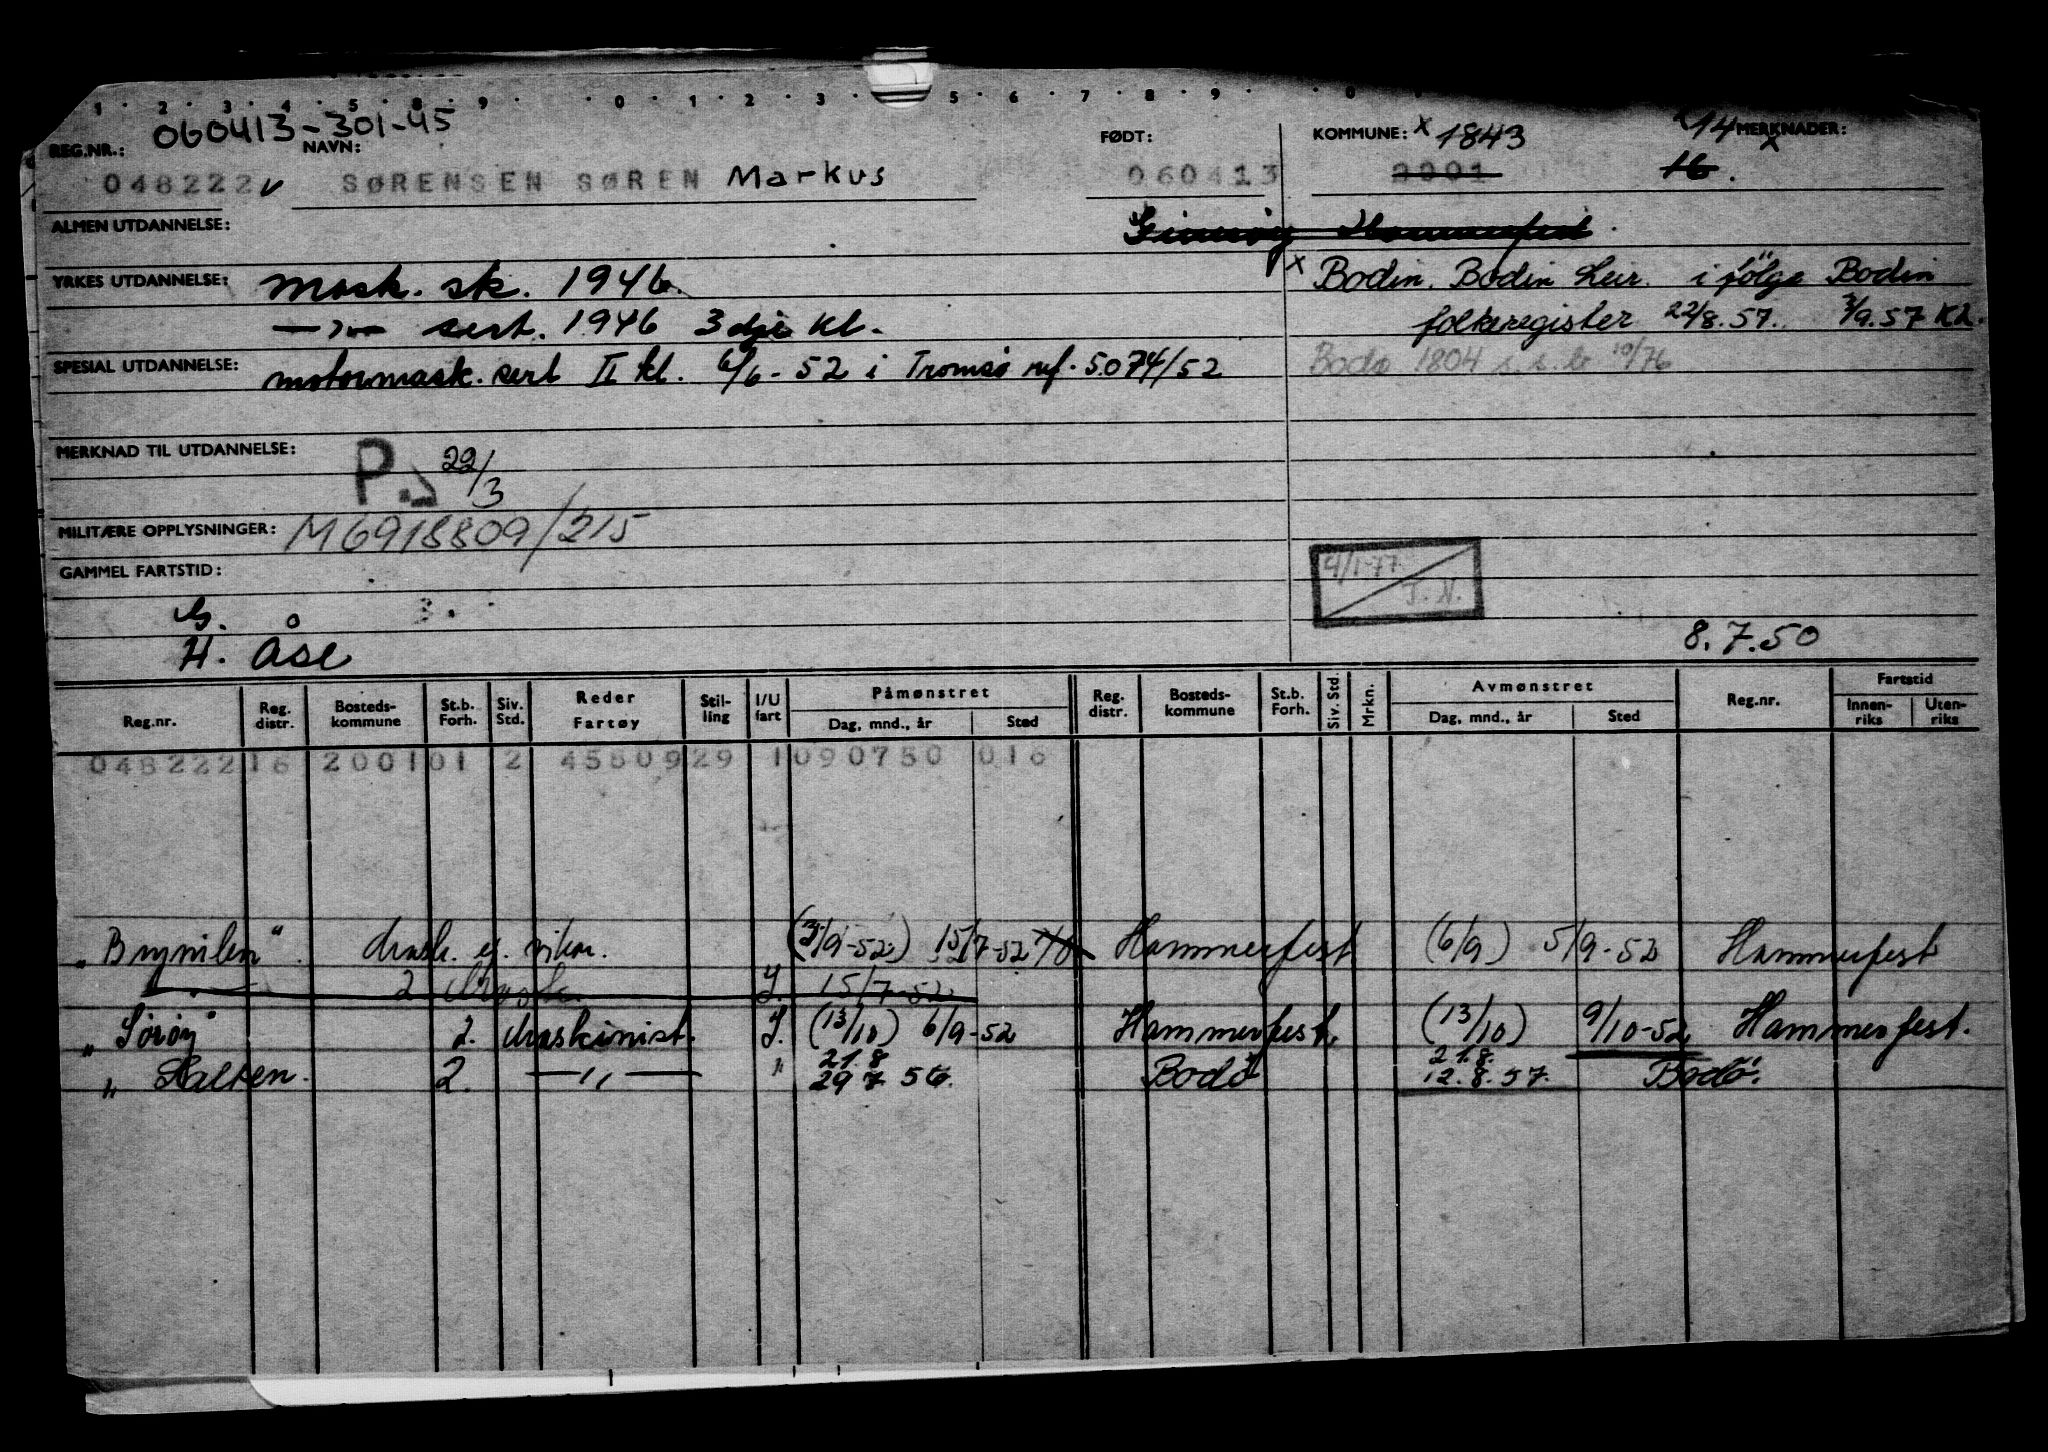 1 2 3 4 5 8 9 0 1 2 3 5 6 7 8 9 0
060413-301-45
REG.NR.: NAVN: FØDT: KOMMUNE: x 1843 14 MERKNADER: x
048222 v SØRENSEN SØREN Markus 060413 2001 16.
ALMEN UTDANNELSE: Hammerfest.
YRKES UTDANNELSE: mask. sk. 1946. x Bodin. Bodin Leir. i følge Bodin
sert. 1946 3dje kl. folkeregister 22/8.57. 3/9.57 Kh.
SPESIAL UTDANNELSE: motormask. sert II kl. 6/6-52 i Tromsø ref. 5074/52 Bodø 1804 s.s.b 10/76
MERKNAD TIL UTDANNELSE: P. 22/3
MILITÆRE OPPLYSNINGER: M6918809/215
GAMMEL FARTSTID: 4/1-77 J.N.
G.
H. Åse 8.7.50
Reg.nr. Reg. distr. Bosteds-kommune St.b. Forh. Siv. Std. Reder Fartøy Stil-ling I/U fart Påmønstret Dag, mnd., år Sted Reg. distr. Bosteds-kommune St.b. Forh. Siv. Std. Mrkn. Avmønstret Dag, mnd., år Sted Reg.nr. Fartstid Innen-riks Uten-riks
048222 16 2001 01 2 45509 29 1 090750 016
"Brynilen". mask. vikar. (3/9-52) 15/7-52 Hammerfest (6/9) 5/9-52 Hammerfest
2 Mask. J. 15/7-52
"Sørøy" 2. Maskinist. J. (13/10) 6/9-52 Hammerfest. (13/10) 9/10-52 Hammerfest.
" Salten. 2. —"— " 21.8 29 7 56. Bodø 21.8. 12.8.57. Bodø.